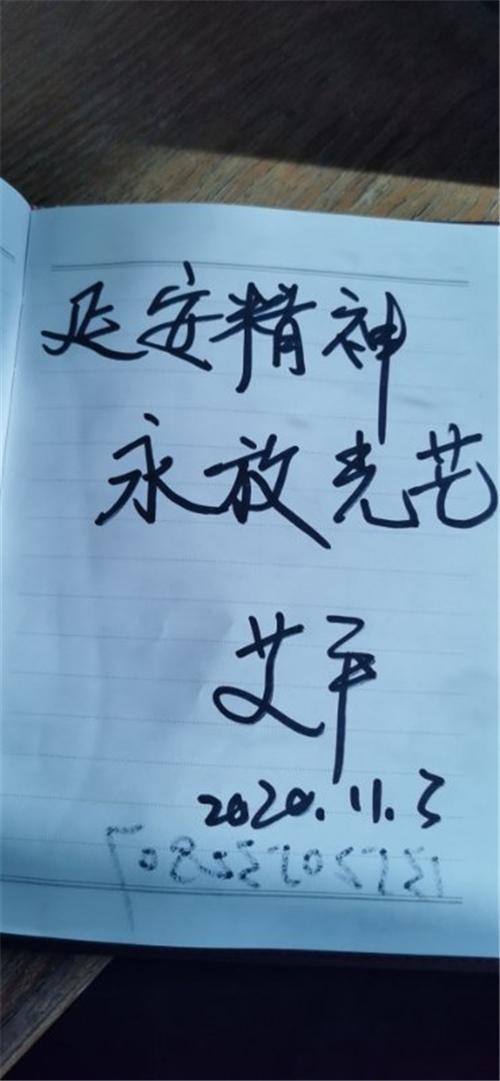 延安精神
永放光芒
艾平
2020.11.3